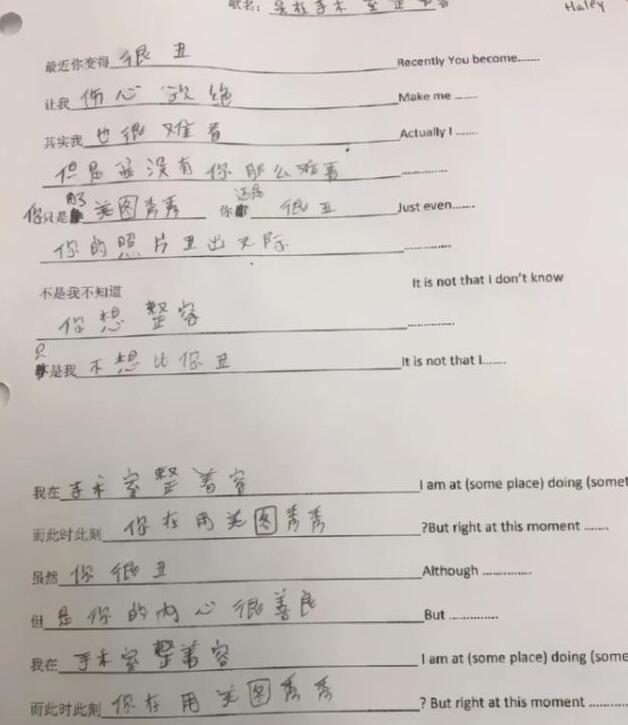 歌名：我在手术室整容 Haley
最近你变得 很 丑 Recently You become.......
让我 伤心 欲绝 Make me .......
其实我 也很难看 Actually I .......
但是我没有你那么难看 ..............
你只是 用了 美图秀秀 你 还是 很丑 Just even.......
你的照片丑出天际 ..............
不是我不知道 It is not that I don't know
你想整容 ..............
只是我 不想比你丑 It is not that I.......
我在 手术室整着容 I am at (some place) doing (somet
而此时此刻 你在用美图秀秀 ?But right at this moment .......
虽然 你很丑 Although ..............
但 是你的内心很善良 But ..............
我在 手术室整着容 I am at (some place) doing (some
而此时此刻 你在用美图秀秀 ? But right at this moment .......